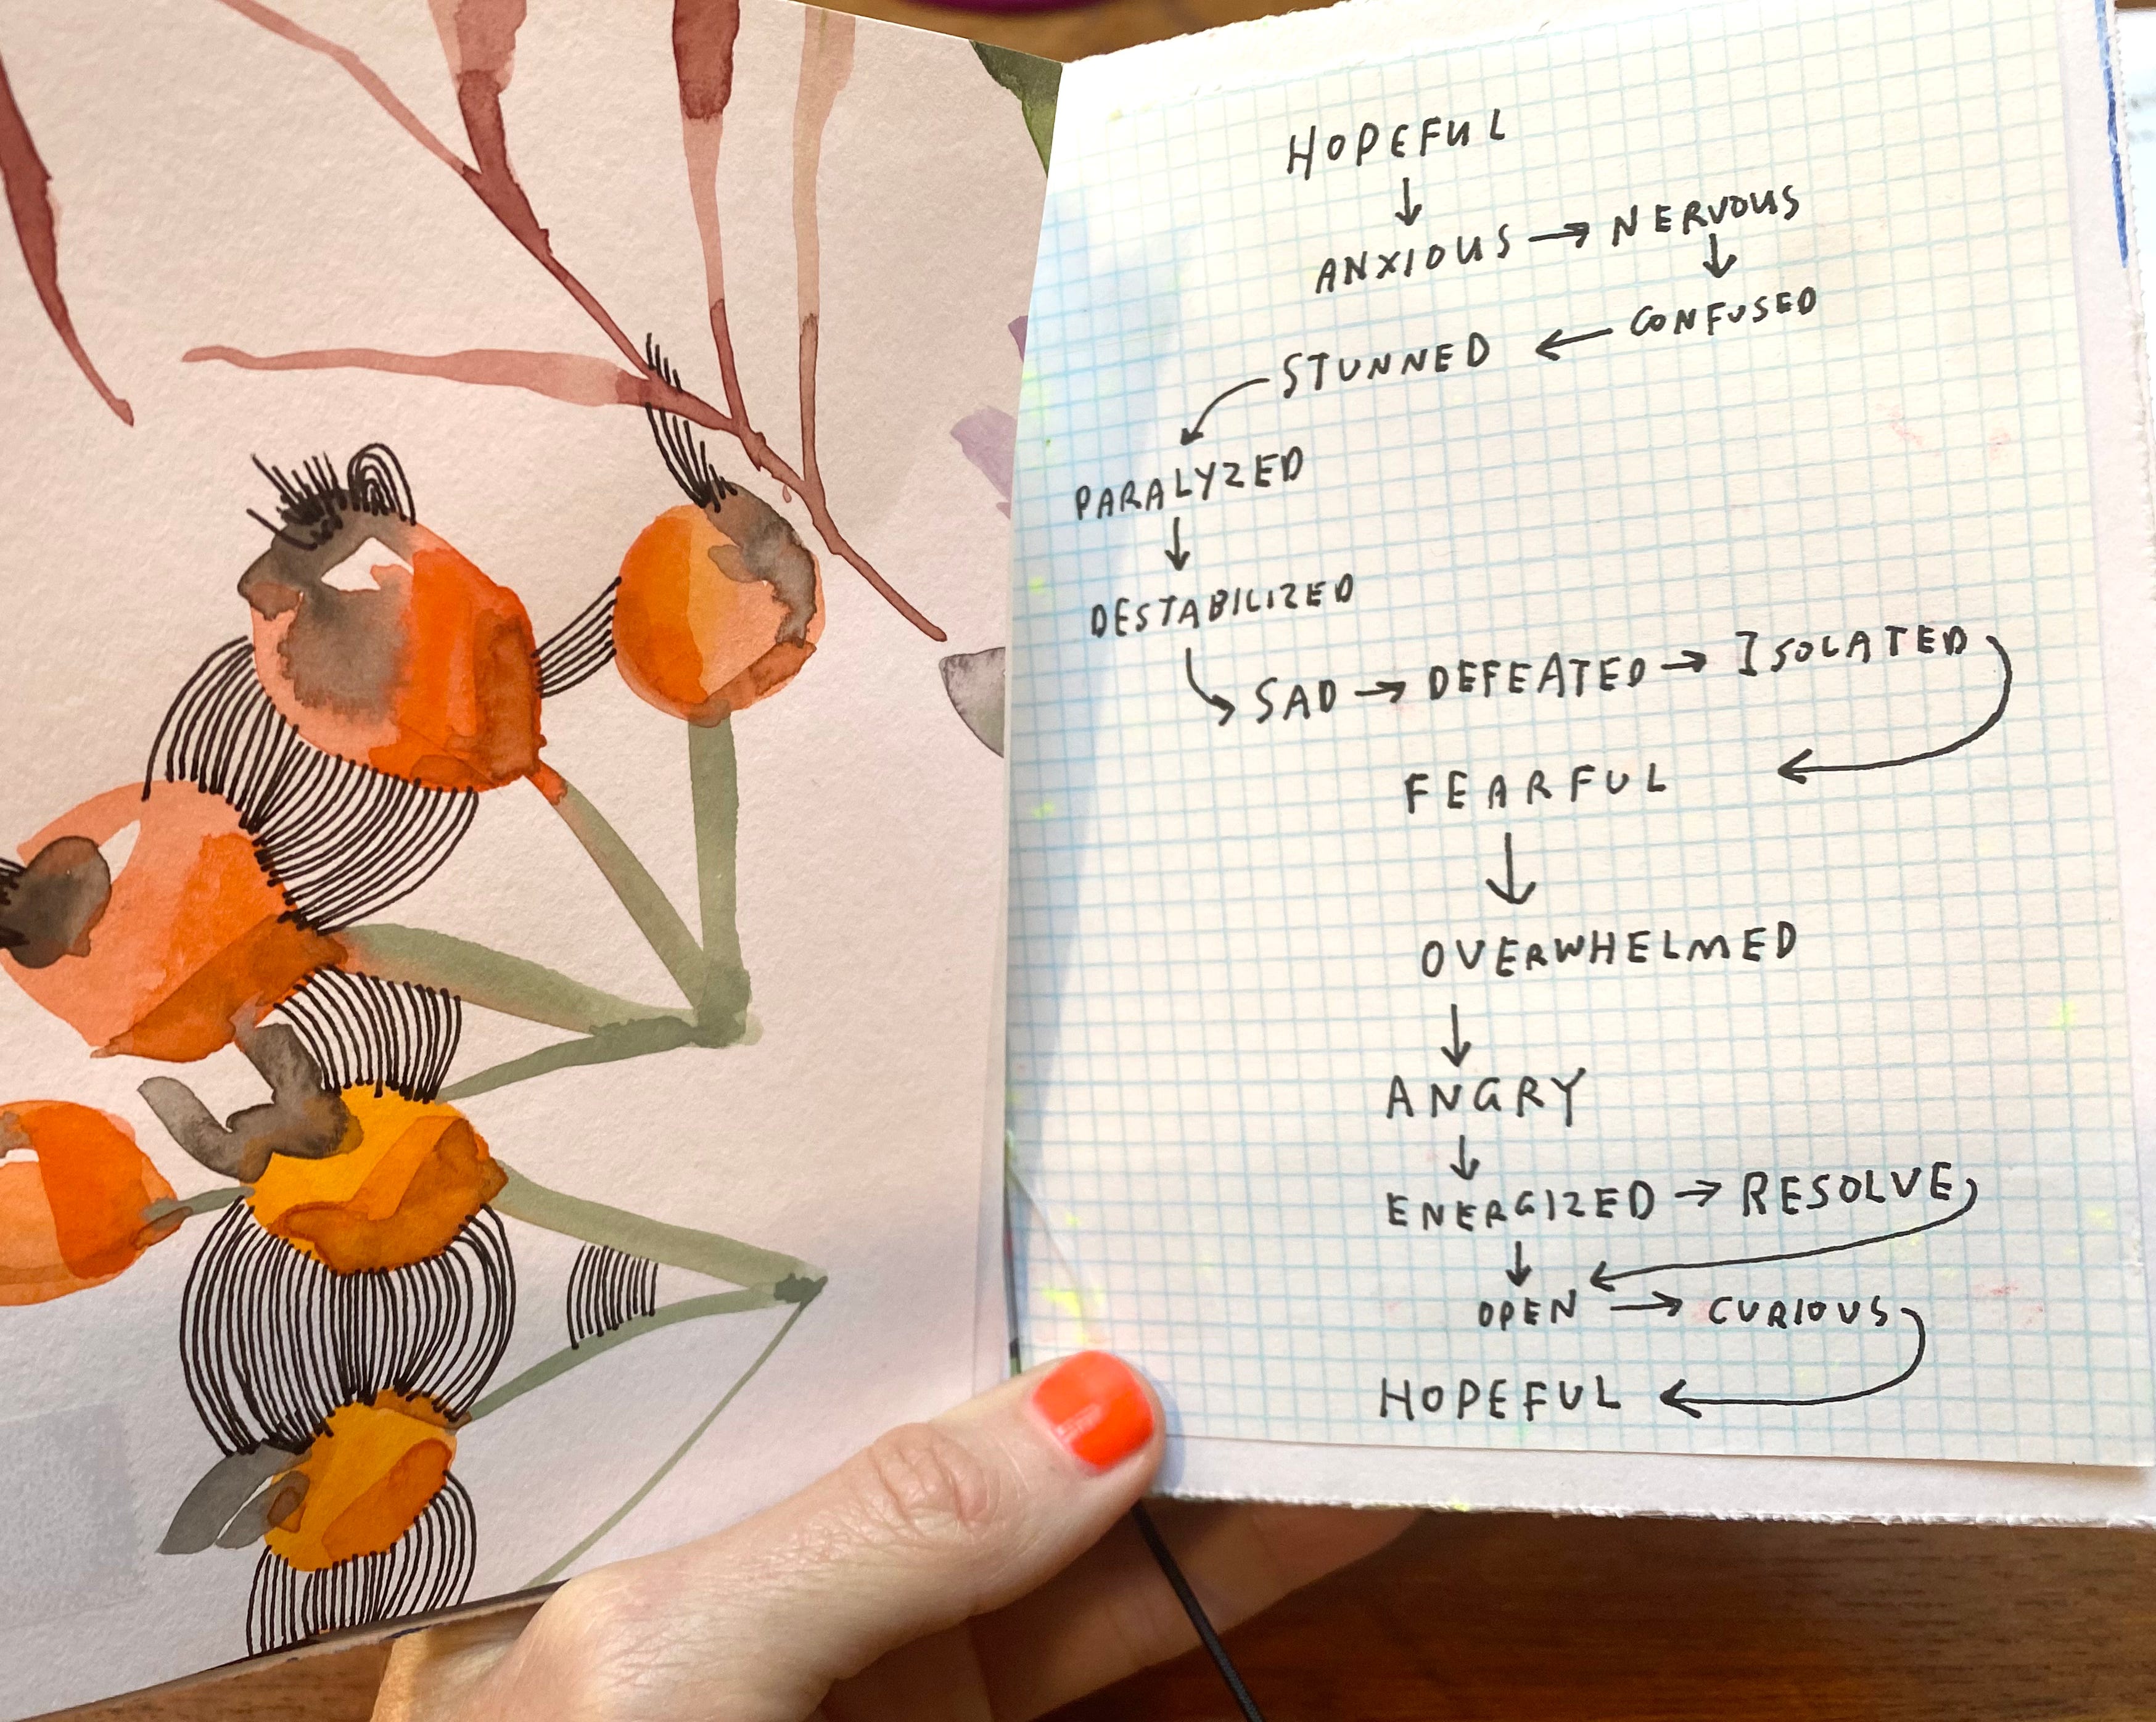 HOPEFUL
↓
ANXIOUS → NERVOUS
↓
STUNNED ← CONFUSED
↓
PARALYZED
↓
DESTABILIZED
↓
SAD → DEFEATED → ISOLATED
FEARFUL ←
↓
OVERWHELMED
↓
ANGRY
↓
ENERGIZED → RESOLVE
↓
OPEN → CURIOUS
HOPEFUL ←